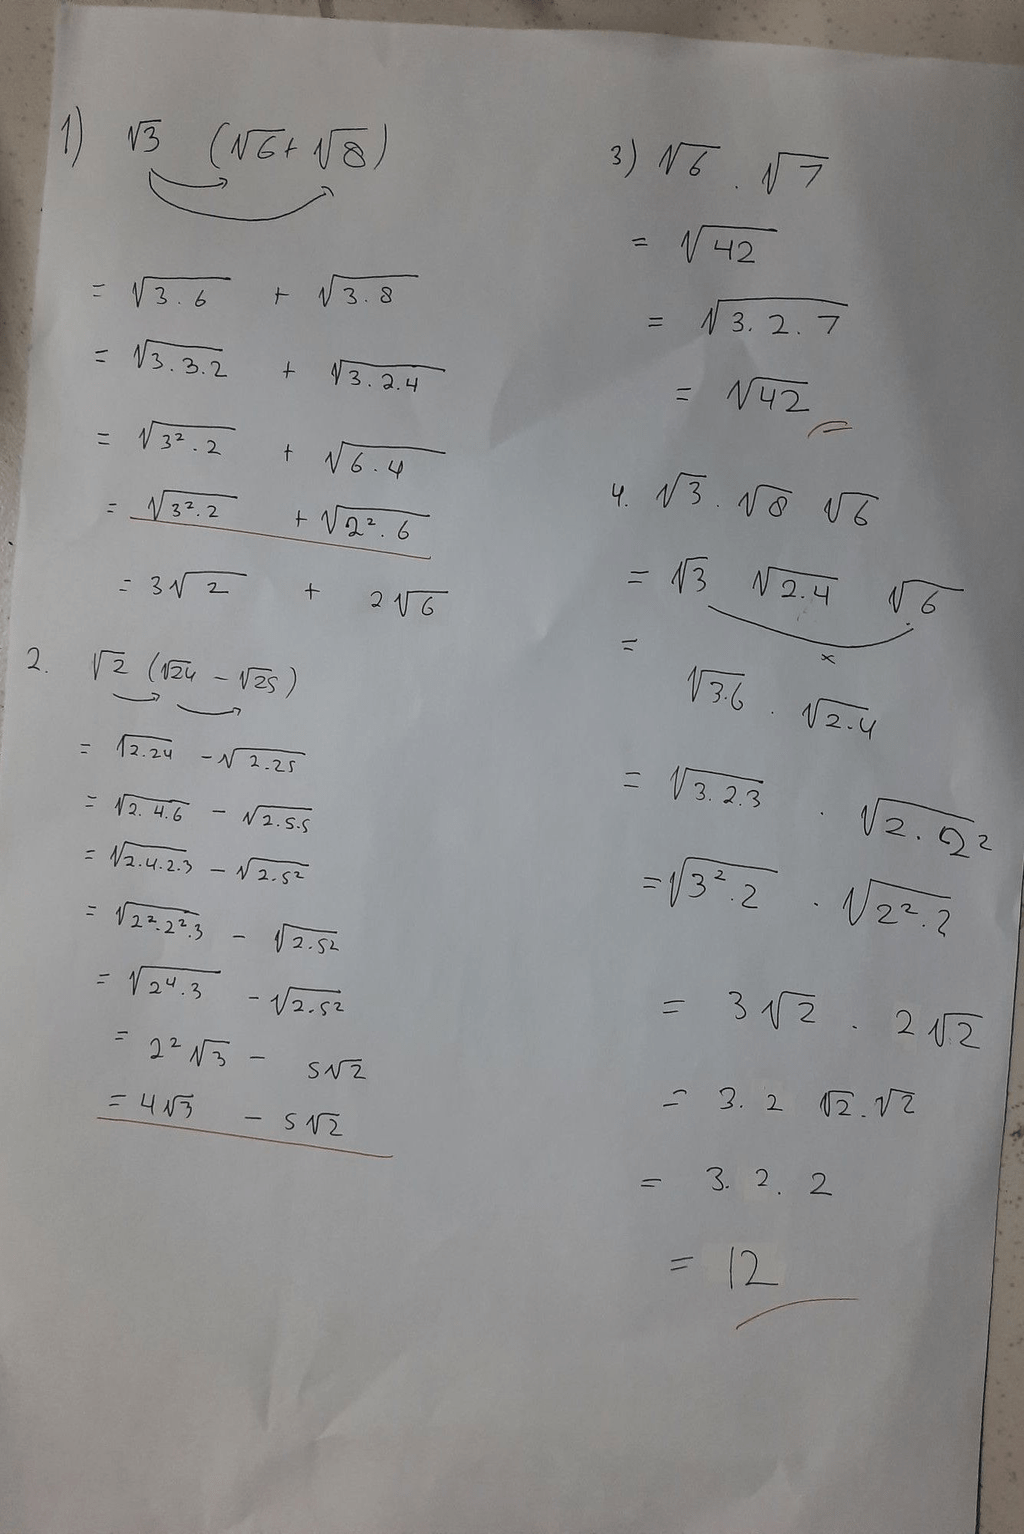 1) √3 (√6 + √8)
= √3.6 + √3.8
= √3.3.2 + √3.2.4
= √3².2 + √6.4
= √3².2 + √2².6
= 3√2 + 2√6
2. √2 (√24 - √25)
= √2.24 - √2.25
= √2.4.6 - √2.5.5
= √2.4.2.3 - √2.5²
= √2².2².3 - √2.5²
= √2⁴.3 - √2.5²
= 2²√3 - 5√2
= 4√3 - 5√2
3) √6 . √7
= √42
= √3.2.7
= √42
4. √3 . √8 √6
= √3 √2.4 √6
x
=
√3.6 . √2.4
= √3.2.3 . √2.2²
= √3².2 . √2².2
= 3√2 . 2√2
= 3.2 √2.√2
= 3.2.2
= 12